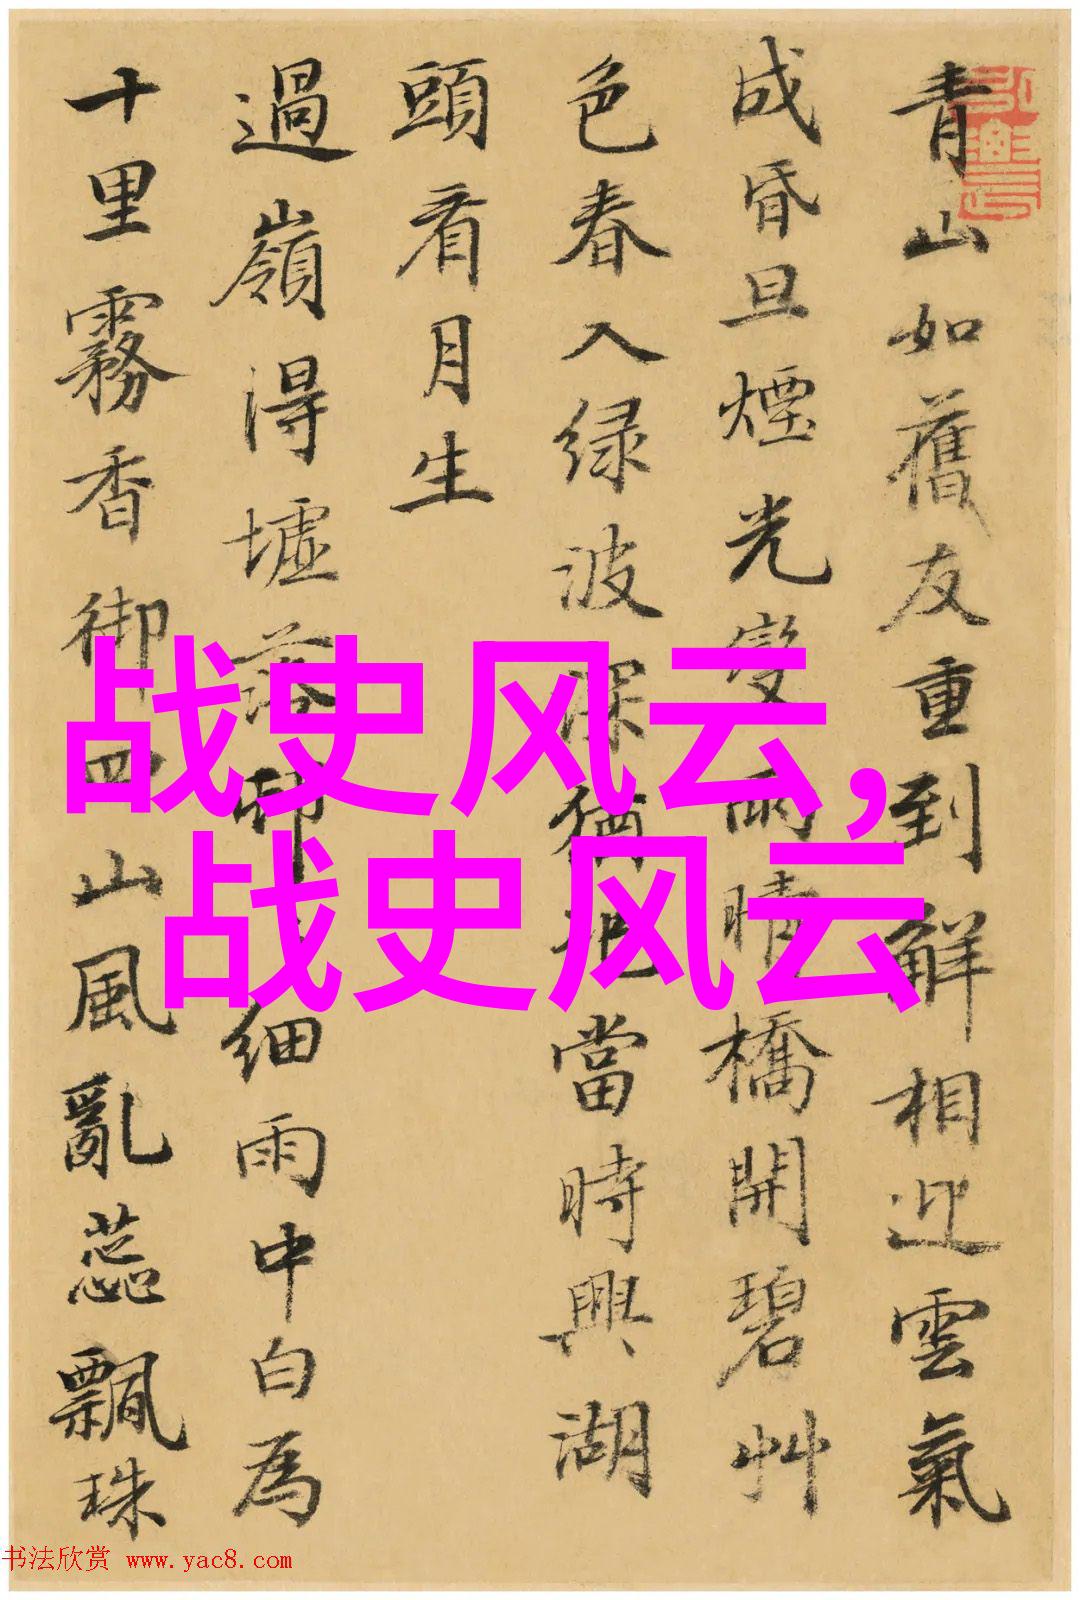 青山如舊友重到解相迎雲氣
成昏旦煙光變雨晴橋開碧艸
色春入緑波深猶記當時興湖
頭看月生
過嶺得墟落邨細雨中白為
十里霧香御四山風亂蕊飄珠
战史风云,
战史风云
书法欣赏 www.yac8.com